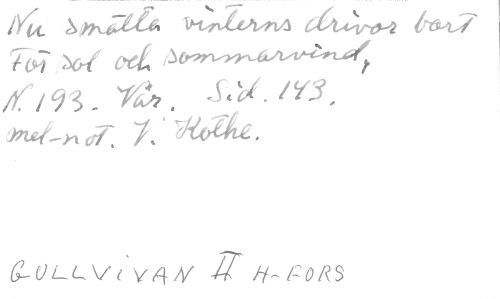 Nu smälta vinterns drivor bort
För sol och sommarvind,
N. 193. Vår. Sid. 143.
mel-not. V. Kothe.
GULLVIVAN II H-FORS